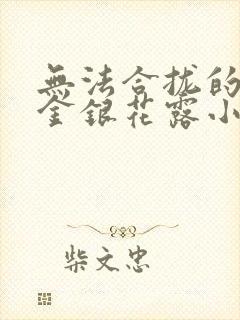 無法合拢的
金銀花露小
柴文忠